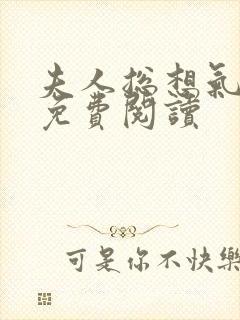 夫人总想氣
免費閱讀
可是你不快樂